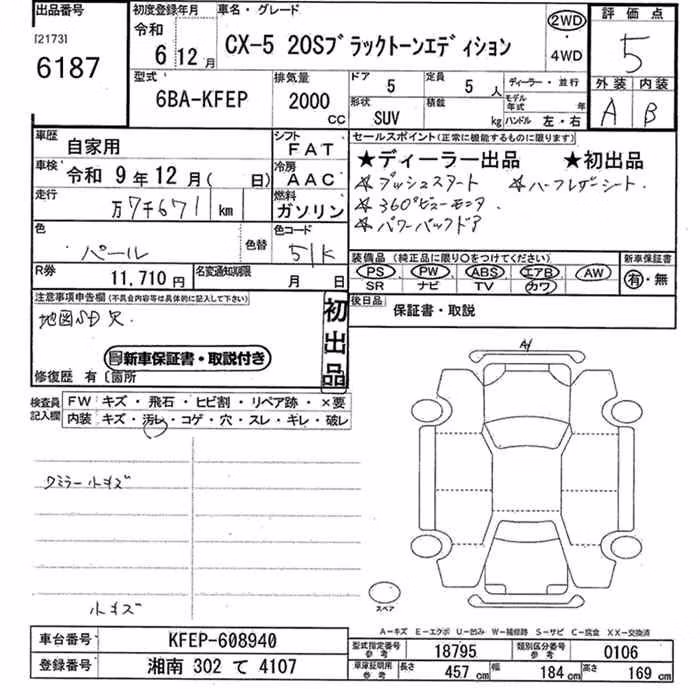 出品番号
[2173]
6187
初度登録年月
令和
6 12 月
車名・グレード
CX-5 20Sブラックトーンエディション
2WD
4WD
評価点
5
外装 内装
A B
型式
6BA-KFEP
排気量
2000
CC
ドア
5
定員
5 人
形状
SUV
積載
kg
ディーラー・並行
モデル年式 年
ハンドル 左・右
車歴
自家用
シフト
FAT
車検
令和 9 年 12 月( 日)
冷房
AAC
走行
万7千671 km
燃料
ガソリン
色
パール
色替
色コード
51K
R券
11,710 円
名変通知期限
月 日
セールスポイント(正常に機能するものに限ります)
★ディーラー出品 ★初出品
☆プッシュスタート ☆ハーフレザーシート.
☆360°ビューモニタ
☆パワーバックドア
装備品 (純正品に限り○をつけてください)
PS PW ABS エアB AW
SR ナビ TV カワ
新車保証書
有・無
後日品
保証書・取説
注意事項申告欄(不具合内容等は具体的に記入して下さい)
地図SD欠.
初出品
新車保証書・取説付き
修復歴 有〔箇所
検査員記入欄
FW キズ・飛石・ヒビ割・リペア跡・×要
内装 キズ・汚レ・コゲ・穴・スレ・キレ・破レ
Wミラー小キズ
小キズ
A1
スペア
A-キズ E-エクボ U-凹み W-補修跡 S-サビ C-腐食 XX-交換済
車台番号
KFEP-608940
登録番号
湘南 302 て 4107
型式指定番号
参考
18795
類別区分番号
参考
0106
車庫証明用
参考
長さ 457 cm
幅 184 cm
高さ 169 cm